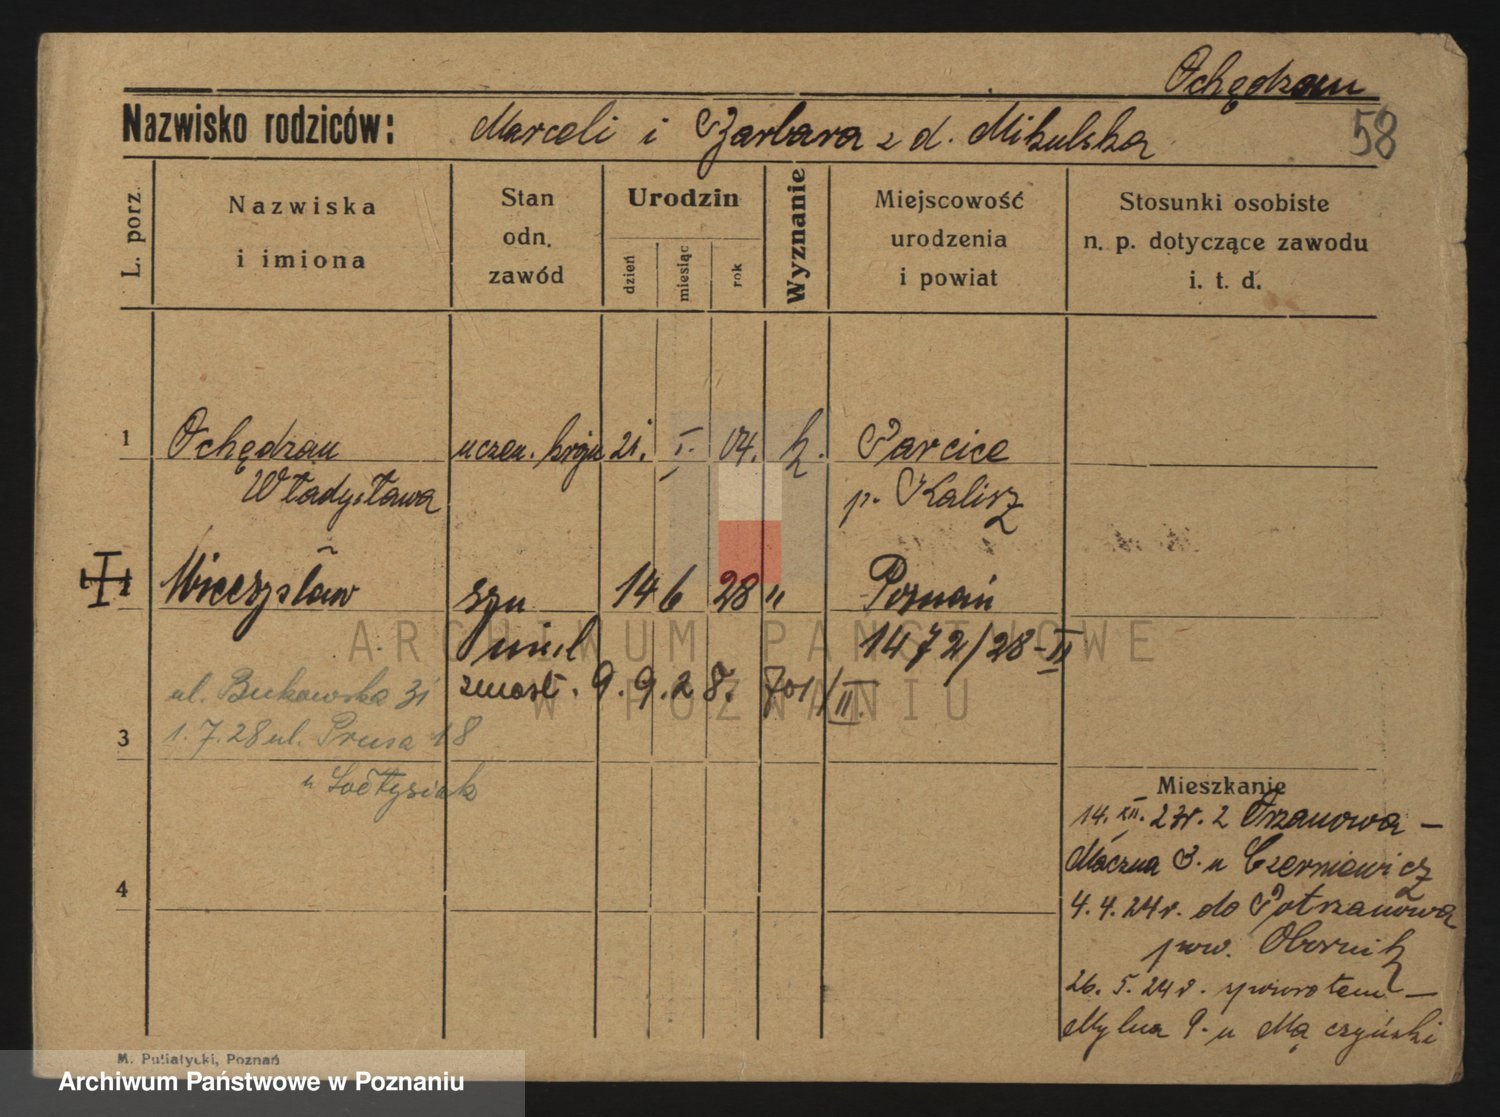 Ochędzan
58
Nazwisko rodziców: Marceli i Barbara z d. Mikulska
L. porz.
Nazwiska
i imiona
Stan
odn.
zawód
Urodzin
dzień
miesiąc
rok
Wyznanie
Miejscowość
urodzenia
i powiat
Stosunki osobiste
n. p. dotyczące zawodu
i. t. d.
1 Ochędzan uczen. kroju 21. I. 04. k. Parcice
Władysława p. Kalisz
Mieczysław syn 14 6 28 " Poznań
niel 1472/28-II
zmarł. 9.9.28. 701/II.
ul. Bukowska 31
3 1.7.28 ul. Prusa 18
u Sołtysiak
4
Mieszkanie
14. XII. 23r. z Trzanowa -
Mączna 3. u Czerniewicz
4.4.24r. do Potrzanowa
pow. Obornik
26.5.24r. spowrotem -
Mylna 9. u Mączyński
M. Putiatycki, Poznań
ARCHIWUM PAŃSTWOWE
W POZNANIU
Archiwum Państwowe w Poznaniu